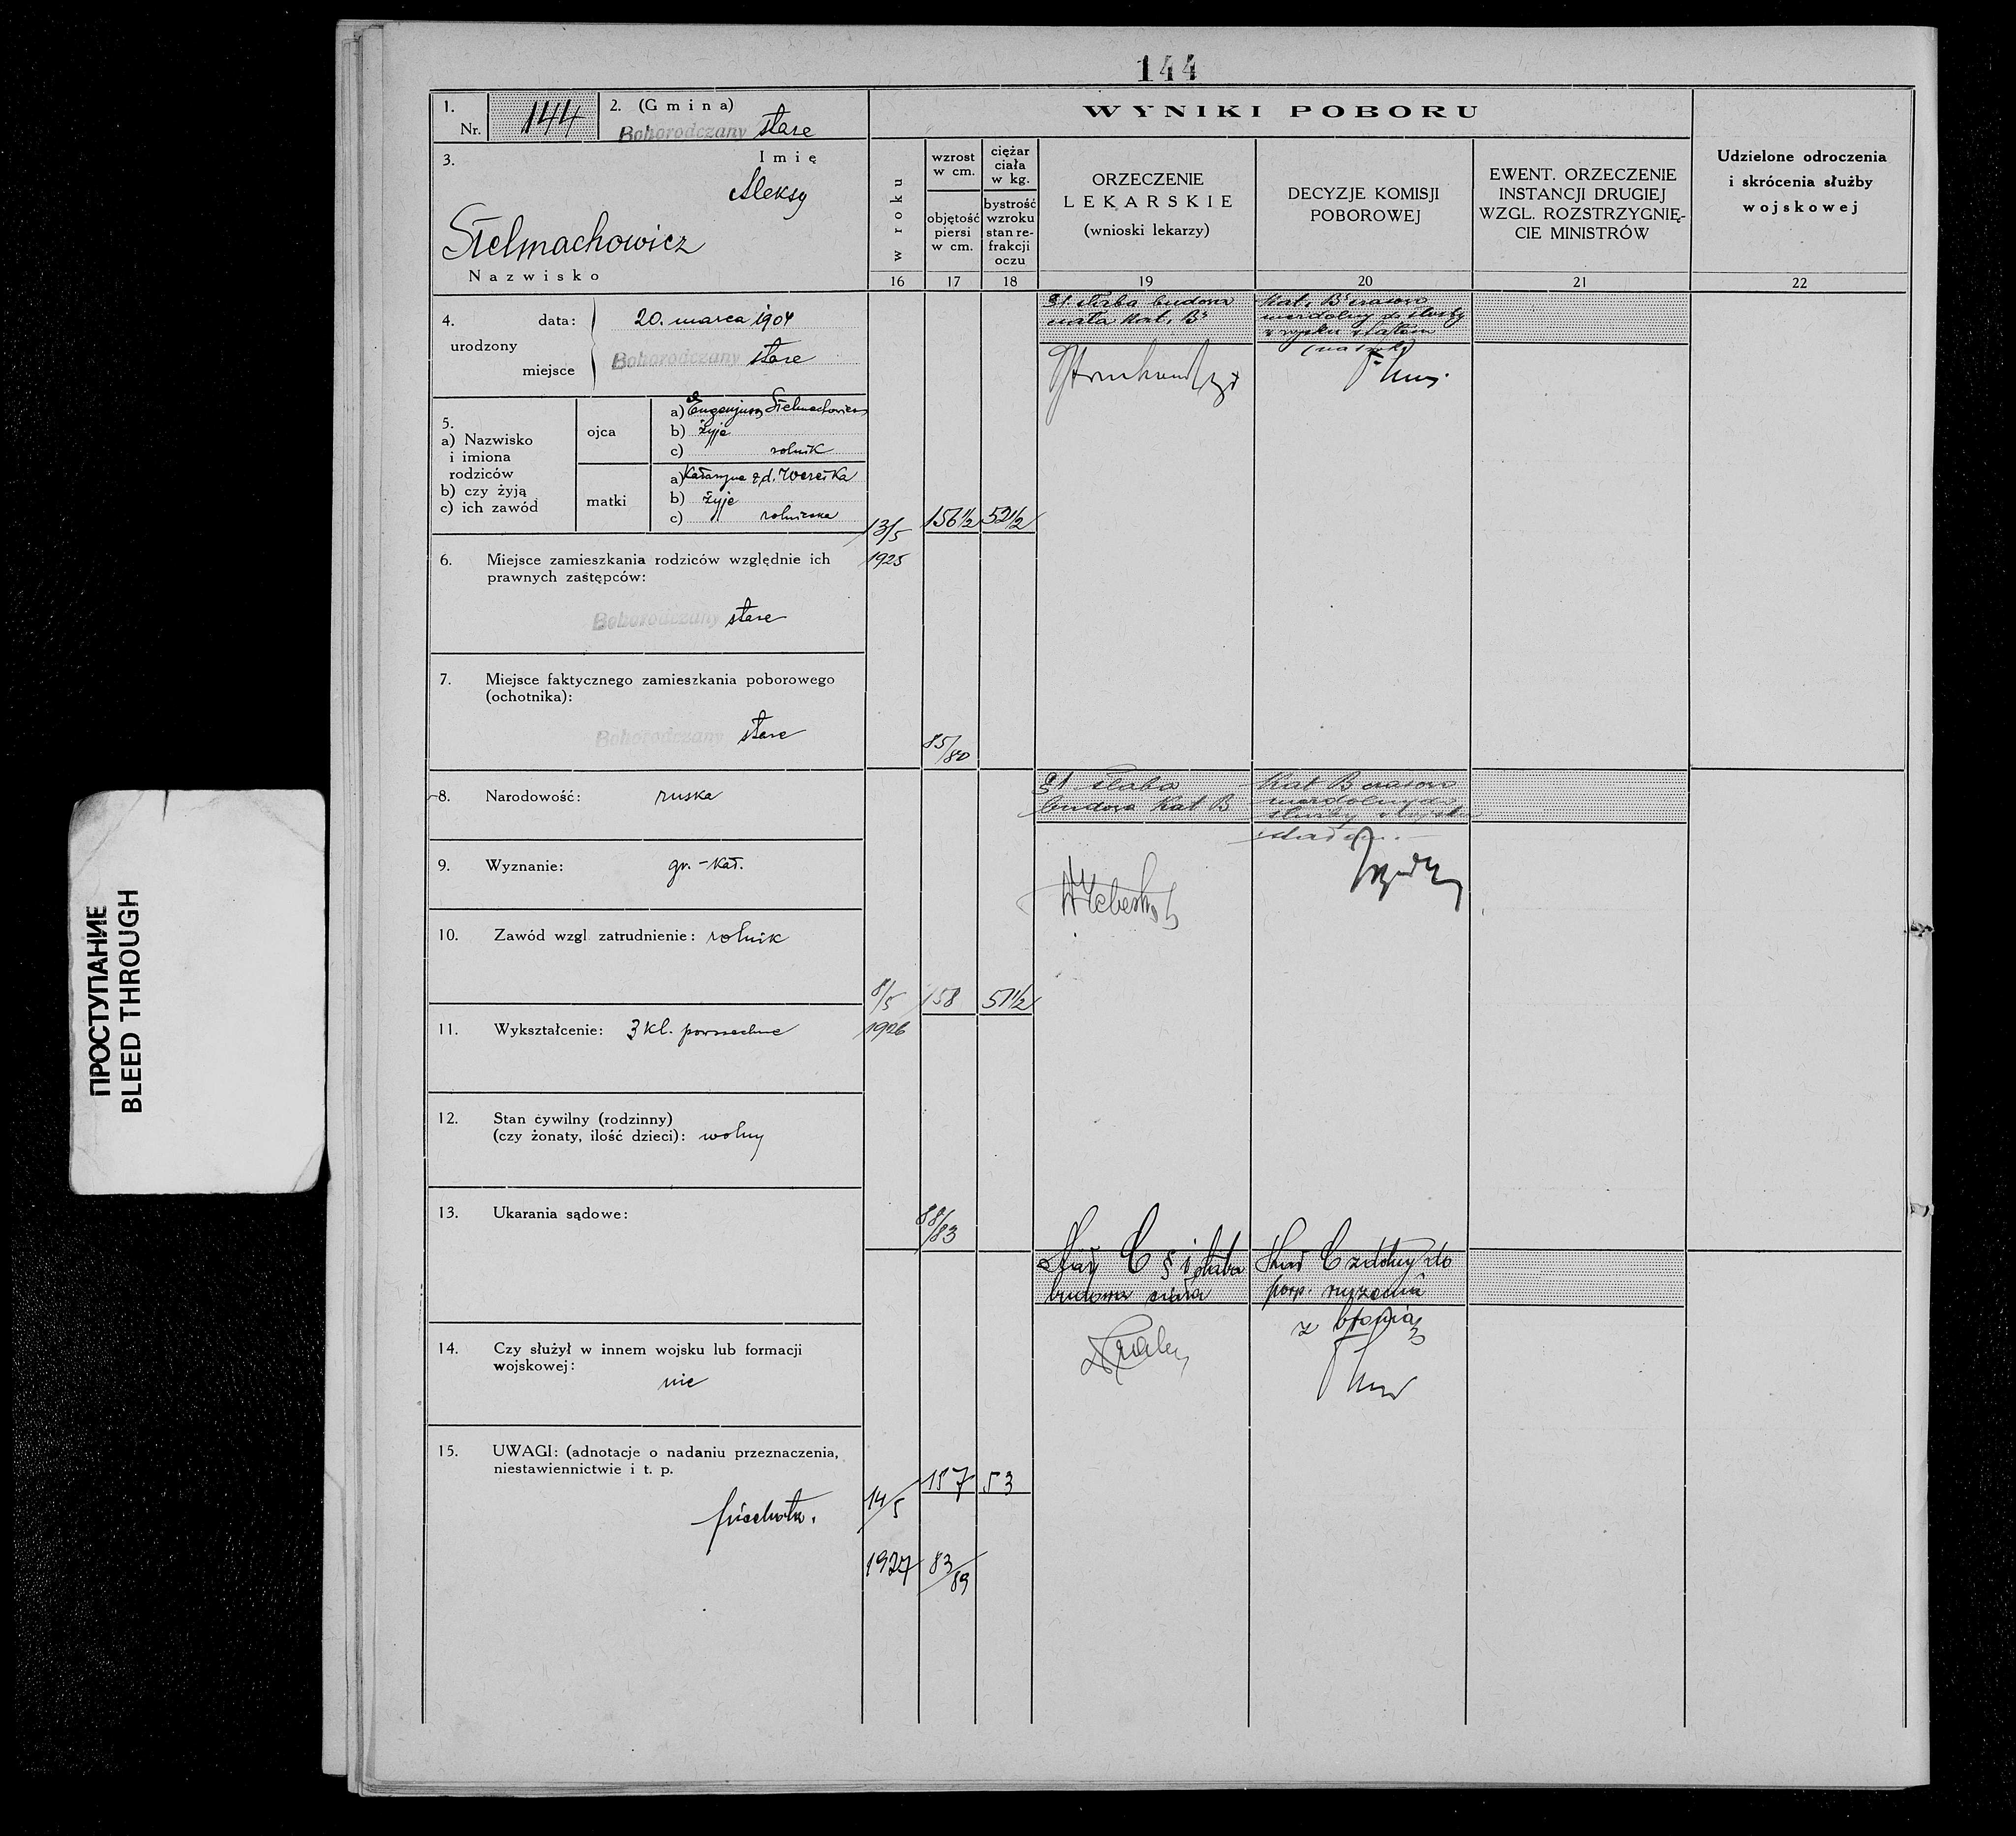 144
1.
Nr. 144
2. (Gmina)
Bohorodczany stare
3. Imię
Aleksy
Stelmachowicz
Nazwisko
4. data: 20. marca 1904
urodzony
miejsce Bohorodczany stare
5.
a) Nazwisko
i imiona
rodziców
b) czy żyją
c) ich zawód
ojca
a) Eugenjusz Stelmachowicz
b) żyje
c) rolnik
matki
a) Katarzyna z d.
b) żyje
c) rolniczka
6. Miejsce zamieszkania rodziców względnie ich
prawnych zastępców:
Bohorodczany stare
7. Miejsce faktycznego zamieszkania poborowego
(ochotnika):
Bohorodczany stare
8. Narodowość: ruska
9. Wyznanie: gr.-kat.
10. Zawód wzgl. zatrudnienie: rolnik
11. Wykształcenie: 3 kl. powszechne
12. Stan cywilny (rodzinny)
(czy żonaty, ilość dzieci): wolny
13. Ukarania sądowe:
14. Czy służył w innem wojsku lub formacji
wojskowej:
nie
15. UWAGI: (adnotacje o nadaniu przeznaczenia,
niestawiennictwie i t. p.
piechota.
WYNIKI POBORU
w roku
wzrost
w cm.
objętość
piersi
w cm.
ciężar
ciała
w kg.
bystrość
wzroku
stan re-
frakcji
oczu
ORZECZENIE
LEKARSKIE
(wnioski lekarzy)
DECYZJE KOMISJI
POBOROWEJ
EWENT. ORZECZENIE
INSTANCJI DRUGIEJ
WZGL. ROZSTRZYGNIĘ-
CIE MINISTRÓW
Udzielone odroczenia
i skrócenia służby
wojskowej
16 17 18 19 20 21 22
13/5 156 1/2 52 1/2
1925
85/80
§1 słaba budowa
ciała Kat. B
Kat. B czasowo
niezdolny do służby
w wojsku stałem
8/5 158 51 1/2
1926
88/83
§1 słaba
budowa Kat B
Kat B czasowo
niezdolny do
służby w wojsku
stałem.
14/5 157 53
1927 83/89
C § 1 słaba
budowa ciała
C zdolny do
posp. ruszenia
z bronią
ПРОСТУПАНИЕ
BLEED THROUGH